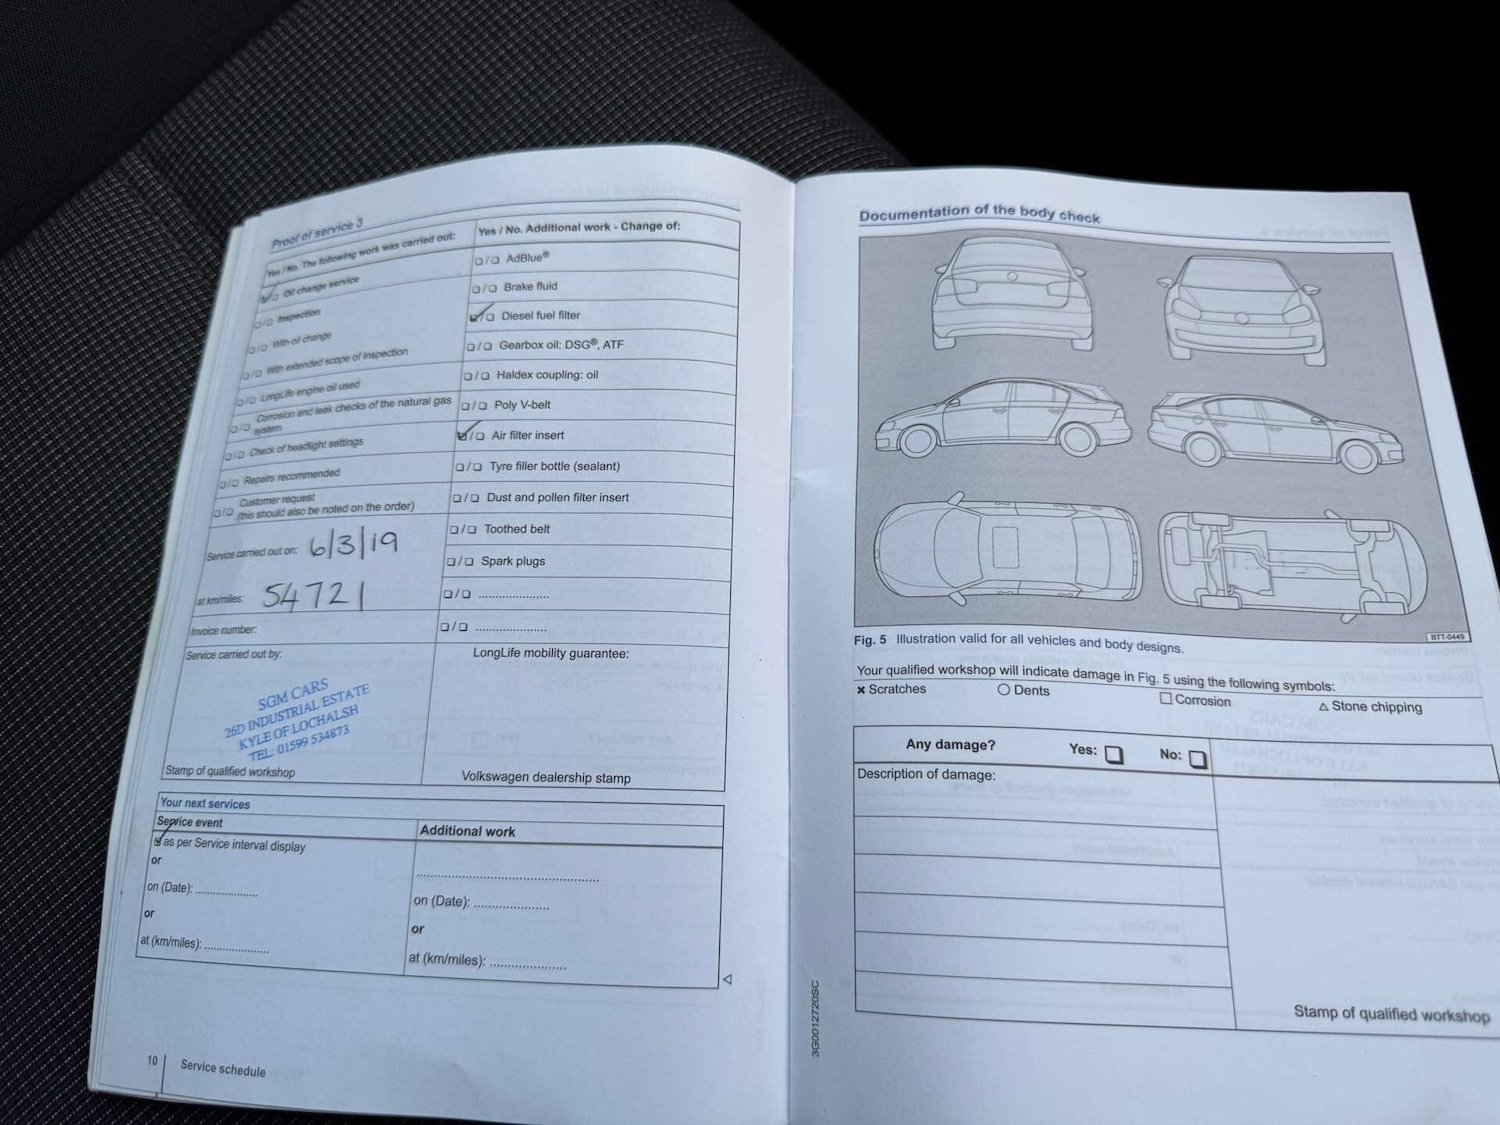 Proof of service 3
Yes / No. The following work was carried out:
☑/☐ Oil change service
☐/☐ Inspection
☐/☐ With oil change
☐/☐ With extended scope of inspection
☐/☐ LongLife engine oil used
☐/☐ Corrosion and leak checks of the natural gas
system
☐/☐ Check of headlight settings
☐/☐ Repairs recommended
☐/☐ Customer request
(this should also be noted on the order)
Service carried out on: 6/3/19
at km/miles: 54721
Invoice number:
Service carried out by:
SGM CARS
26D INDUSTRIAL ESTATE
KYLE OF LOCHALSH
TEL: 01599 534873
Stamp of qualified workshop
Yes / No. Additional work - Change of:
☐/☐ AdBlue®
☐/☐ Brake fluid
☑/☐ Diesel fuel filter
☐/☐ Gearbox oil: DSG®, ATF
☐/☐ Haldex coupling: oil
☐/☐ Poly V-belt
☑/☐ Air filter insert
☐/☐ Tyre filler bottle (sealant)
☐/☐ Dust and pollen filter insert
☐/☐ Toothed belt
☐/☐ Spark plugs
☐/☐ ....................
☐/☐ ....................
LongLife mobility guarantee:
Volkswagen dealership stamp
Your next services
Service event
☑ as per Service interval display
or
on (Date): ..................
or
at (km/miles): ..................
Additional work
..................................................
on (Date): ......................
or
at (km/miles): ......................
10 Service schedule
Documentation of the body check
BTT-0449
Fig. 5 Illustration valid for all vehicles and body designs.
Your qualified workshop will indicate damage in Fig. 5 using the following symbols:
× Scratches ○ Dents ☐ Corrosion △ Stone chipping
Any damage? Yes: ☐ No: ☐
Description of damage:
Stamp of qualified workshop
3G0012720SC